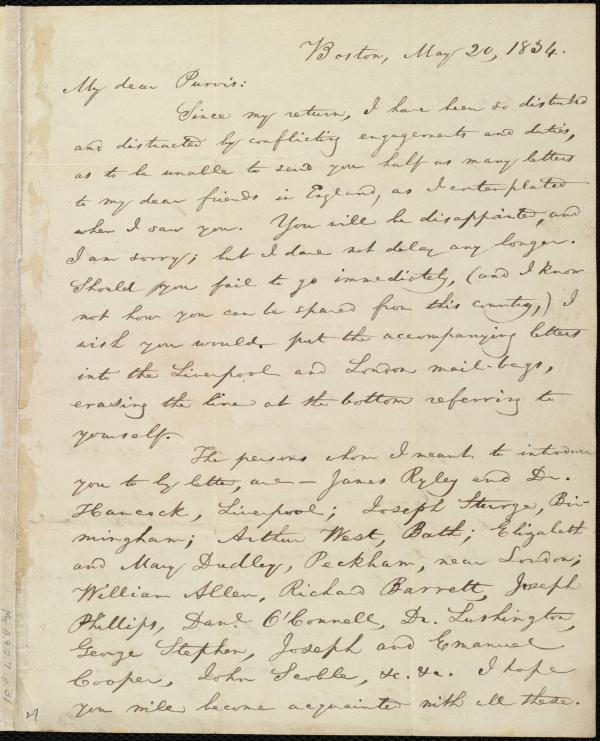 Boston, May 20, 1834.
My dear Purvis:
Since my return, I have been so disturbed
and distracted by conflicting engagements and duties,
as to be unable to send you half as many letters
to my dear friends in England, as I contemplated
when I saw you. You will be disappointed, and
I am sorry; but I dare not delay any longer.
Should you fail to go immediately, (and I know
not how you can be spared from this country,) I
wish you would put the accompanying letters
into the Liverpool and London mail-bags,
erasing the line at the bottom referring to
yourself.
The persons whom I meant to introduce
you to by letter, are — James Ryley and Dr.
Hancock, Liverpool; Joseph Sturge, Bir-
mingham; Arthur West, Bath; Elizabeth
and Mary Dudley, Peckham, near London;
William Allen, Richard Barrett, Joseph
Phillips, Danl. O'Connell, Dr. Lushington,
George Stephen, Joseph and Emanuel
Cooper, John Scoble, &c. &c. I hope
you will become acquainted with all these.